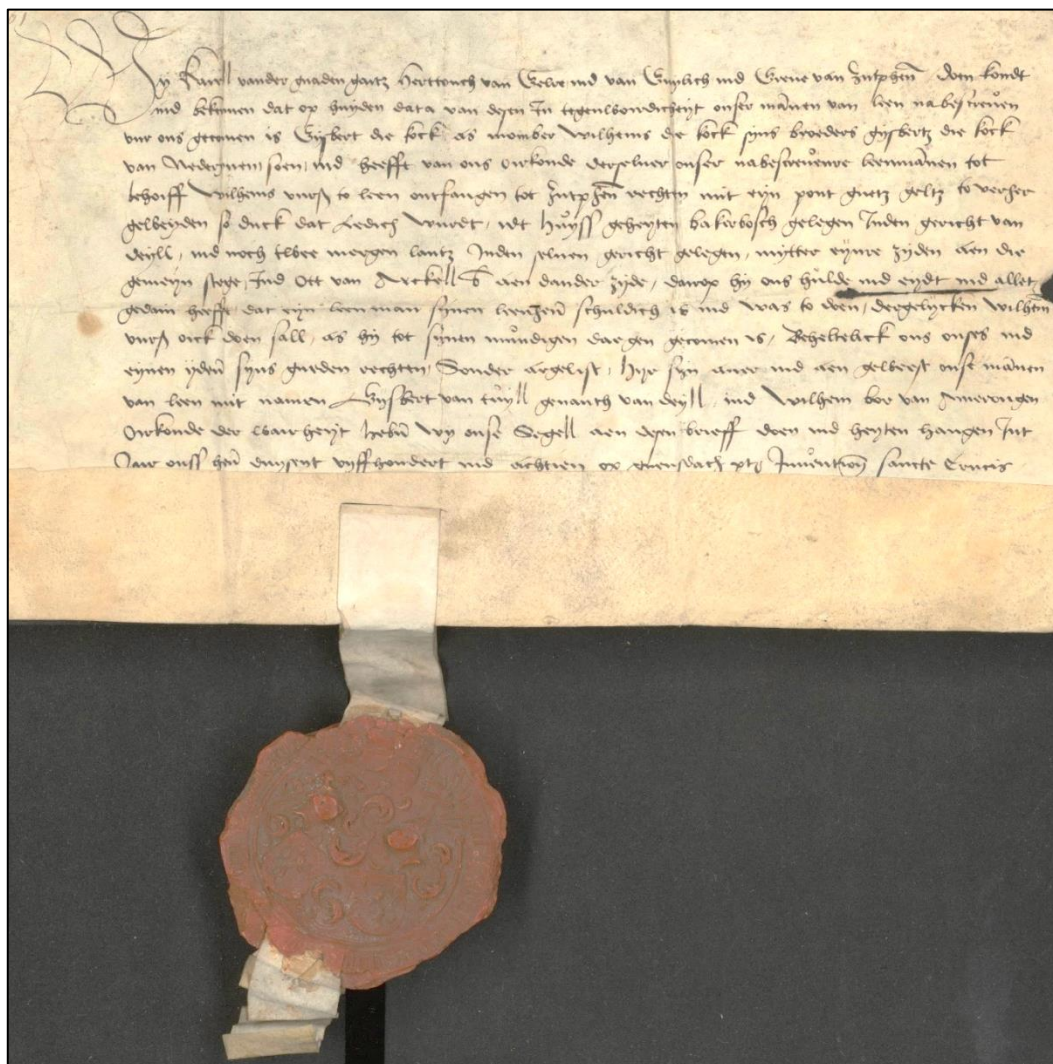 Wy Karll vander gnaden gaitz Herttouch van Gelre ind van Guylich ind Greue van Zutphen Doen kondt
ind bekennen dat op huyden data van desen In tegenwordicheyt onser mannen van leen nabescreuen
vur ons gecomen is Gysbert die kock as momber Wilhems die kock syns broeders gysbertz die kock
van Nederynen soen, ind heefft van ons Oirkonde derseluer onser nabescreuenre leenmannen tot
behoiff Wilhems vurß to leen ontfangen tot Zutphen rechten mit eyn pont guetz geltz to verher
gelweyden so duck dat Ledich wurdt, idt Huyss geheyten bakerbosch gelegen Inden gericht van
deyll, ind noch twee mergen lantz Inden seluen gericht gelegen, mytter eynre zyden aen die
gemeyn stege, Ind Ott van Arckell S aen dander zyde, dairop hy ons hulde ind eydt ind allet
gedain heefft dat eyn leenman synen leenhern schuldich is ind was to doen, dergelycken Wilhem
vurß oick doen sall, as hy tot synen mundigen daegen gecomen is, Beheltelick ons onses ind
eynen yderen syns gueden rechten, Sonder argelist, Hyr syn auer ind aen geweest onse mannen
van leen mit namen Gysbert van tuyll genanth van deyll, ind Wilhem bor van Amerongen
Oirkonde der wairheyt hebn wy onse Segell aen desen brieff doen ind heyten hangen Int
Jair onss hern duysent vyffhondert ind achtien op guensdach Inuentionis sancte Crucis